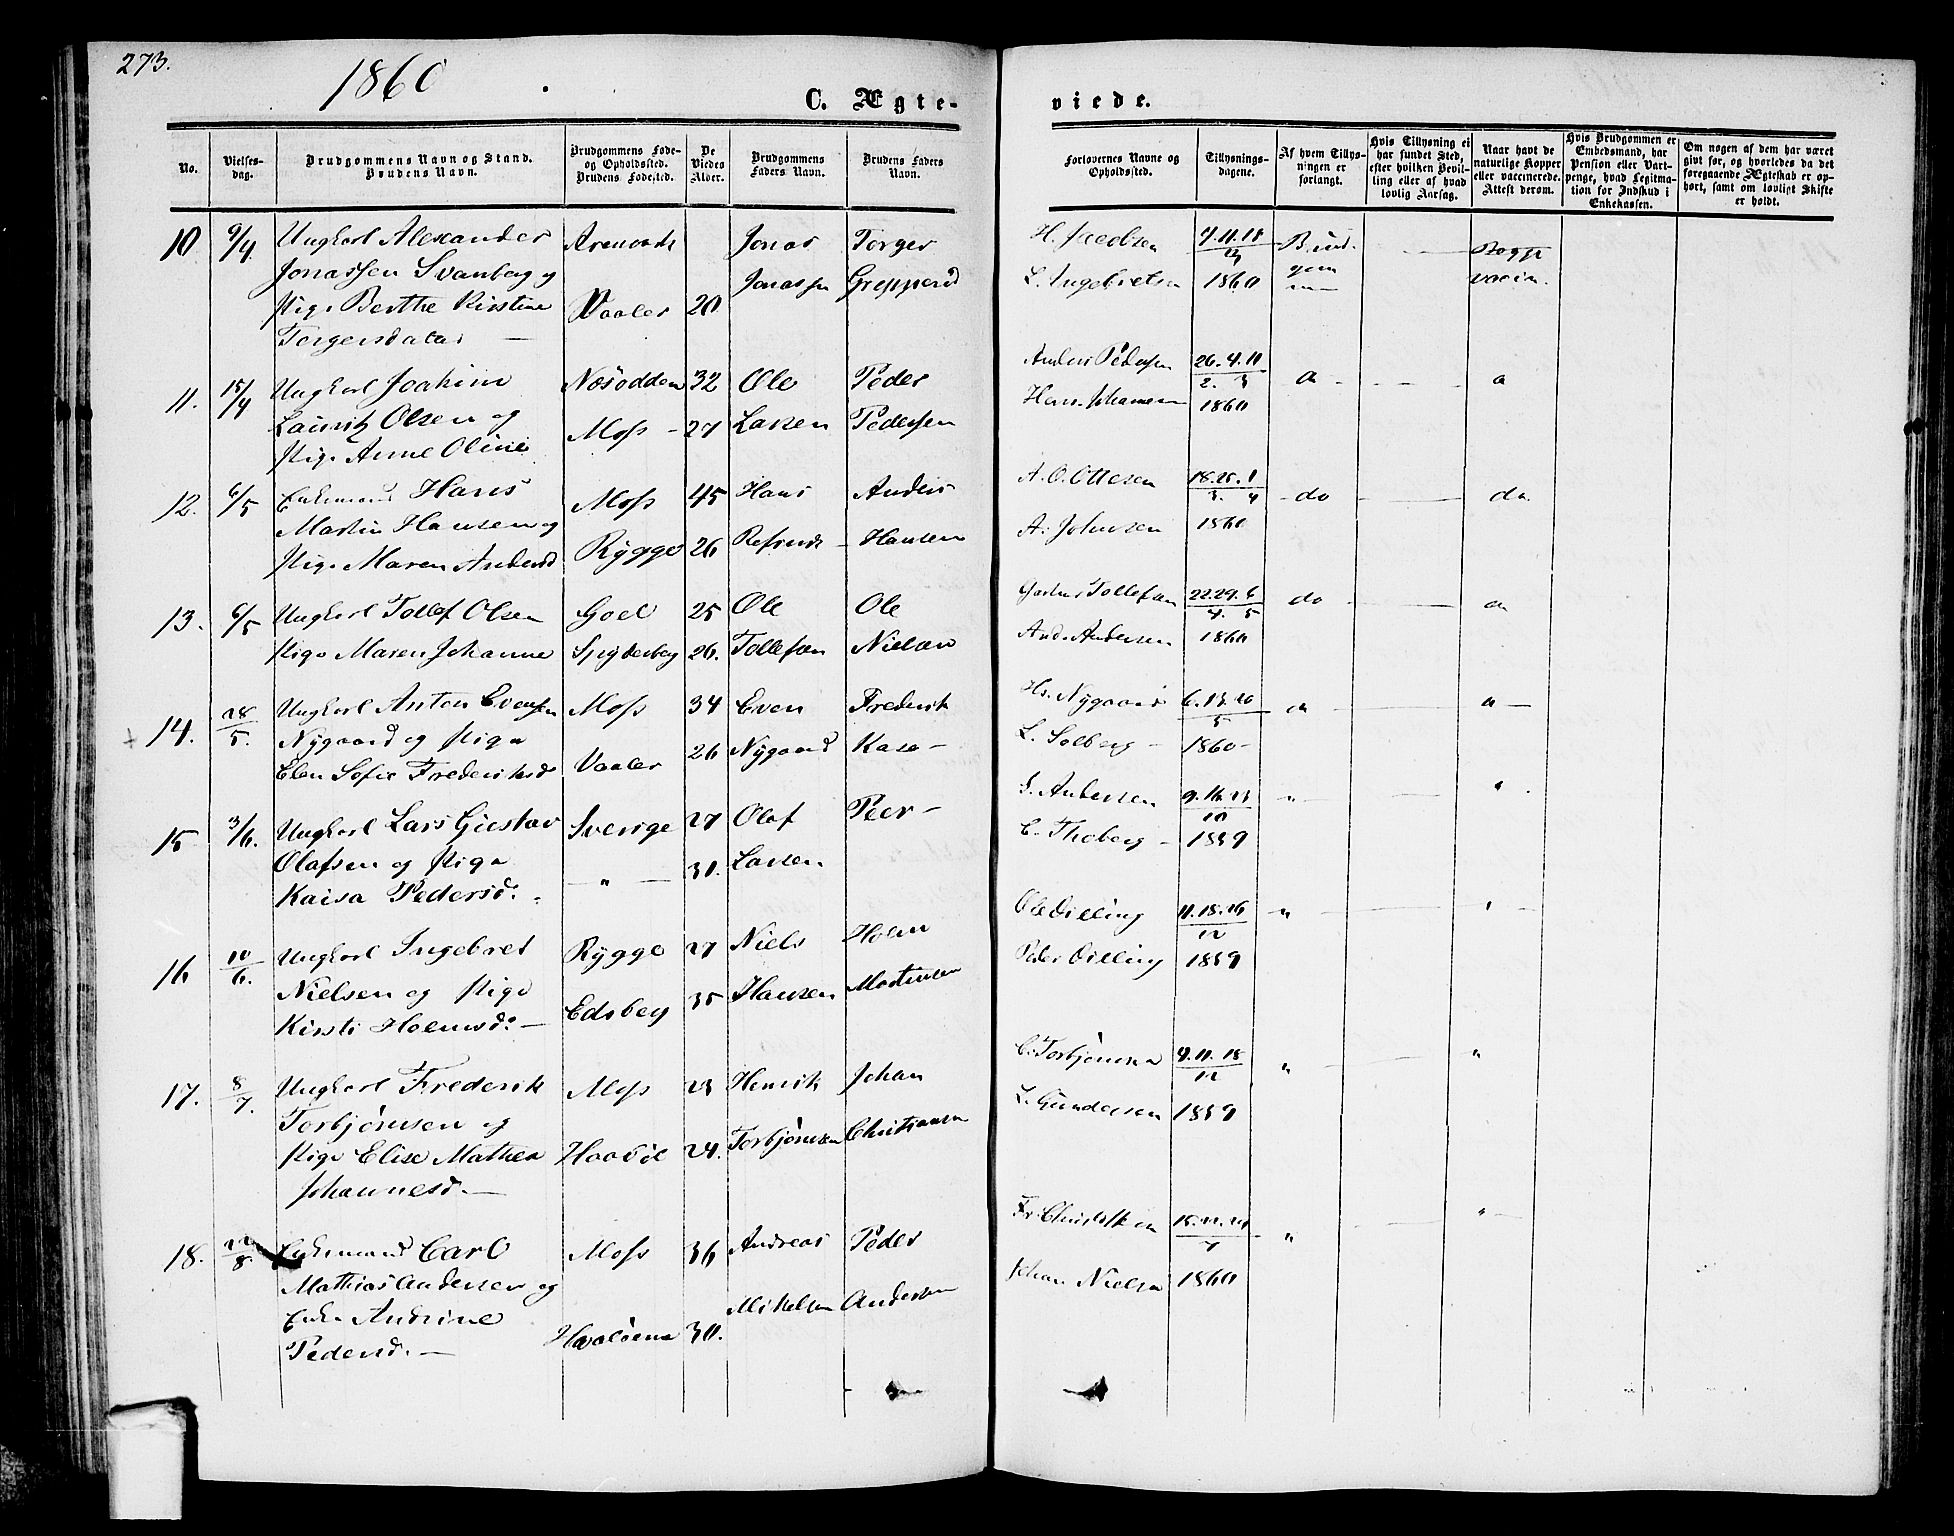 273.
1860
C. Ægte-
viede.
No.
Vielses-
dag.
Brudgommens Navn og Stand.
Brudens Navn.
Brudgommens Føde-
og Opholdssted.
Brudens Fødested.
De
Viedes
Alder.
Brudgommens
Faders Navn.
Brudens Faders
Navn.
Forlovernes Navne og
Opholdssted.
Tillysnings-
dagene.
Af hvem Tillys-
ningen er
forlangt.
Hvis Tillysning ei
har fundet Sted,
efter hvilken Bevil-
ling eller af hvad
lovlig Aarsag.
Naar havt de
naturlige Kopper
eller vaccinerede.
Attest derom.
Hvis Brudgommen er
Embedsmand, har
Pension eller Vart-
penge, hvad Legitma-
tion for Indskud i
Enkekassen.
Om nogen af dem har været
givt før, og hvorledes da det
foregaaende Ægteskab er op-
hørt, samt om lovligt Skifte
er holdt.
10. 9/4 Ungkarl Alexander Jonas Torger H. Jacobsen 4.11.18 Brud-
Jonassen Svanberg og Jonassen L. Ingebretsen 1860 gom vaccin.
Pige Berthe Kirstine Vaaler 20
Torgersdatter
11. 15/4 Ungkarl Joakim Nesodden 32 Ole Peder Anders Pedersen
Lauritz Olsen og Moss 27 Larsen Pedersen Hans Johannesen 1860
Pige Anne Oline
12. 6/5 Enkemand Hans Moss 45 Hans Anders A. O. Ottesen 18.25.1 do do
Martin Hansen og Rygge 26 Hansen A. Johnsen 3. 4 1860
Pige Maren Andersd
13. 6/5 Ungkarl Tollef Olsen Goel 25 Ole Ole Tollefsen 22.29.6 do
Pige Maren Johanne Spydeberg 26. Tollefsen Nielsen And. Andersen 4. 5 1860
14. 28/5. Ungkarl Anton Evensen Moss 34 Even Frederik Hs. Nygaard 6.13.20
Nygaard og Pige Vaaler 26 Nygaard Kase L. Solberg 5 1860
Elen Sofie Frederiksd
15 3/6. Ungkarl Lars Gustav Sverige 27 Olof Peer Andersen 9.16.23
Olafsen og Pige " 31. Larsen C. Thoberg 10 1859
Kaisa Pedersd.
16 10/6. Ungkarl Ingebret Rygge 27 Niels Holm Ole Dilling 11.18.26 "
Nielsen og Pige Edsberg 35 Hansen Martinsen Peder Dilling 12 1859
Kirsti Holmsd.
17. 8/7. Ungkarl Frederik Moss 23 Henrik Johan C. Torbjørnsen 4.11.18 "
Torbjørnsen og Haabøl 24. Torbjørnsen Christiansen L. Gundersen 12 1859
Pige Elise Mathea
Johannesd.
18. 22/8. Enkemand Carl Moss 36 Andreas Peder Fr. "
Mathias Andersen og Hvaløerne 30. Mikelsen Andersen Johan Nielsen 1860
Enke Andrine
Pedersd.